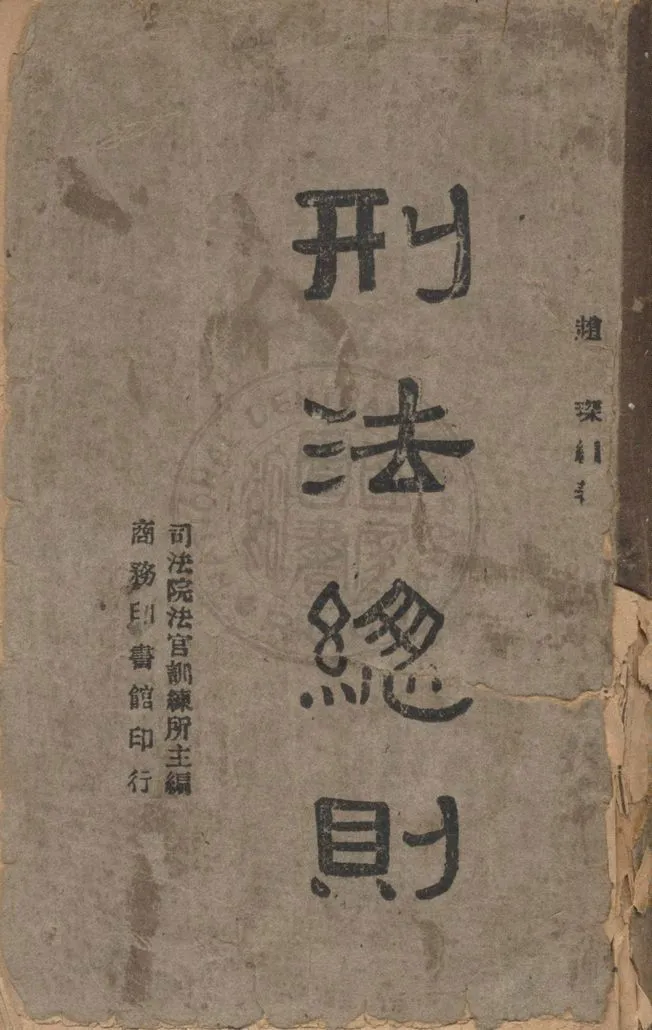 趙琛
刑法總則
司法院法官訓練所主編
商務印書館印行